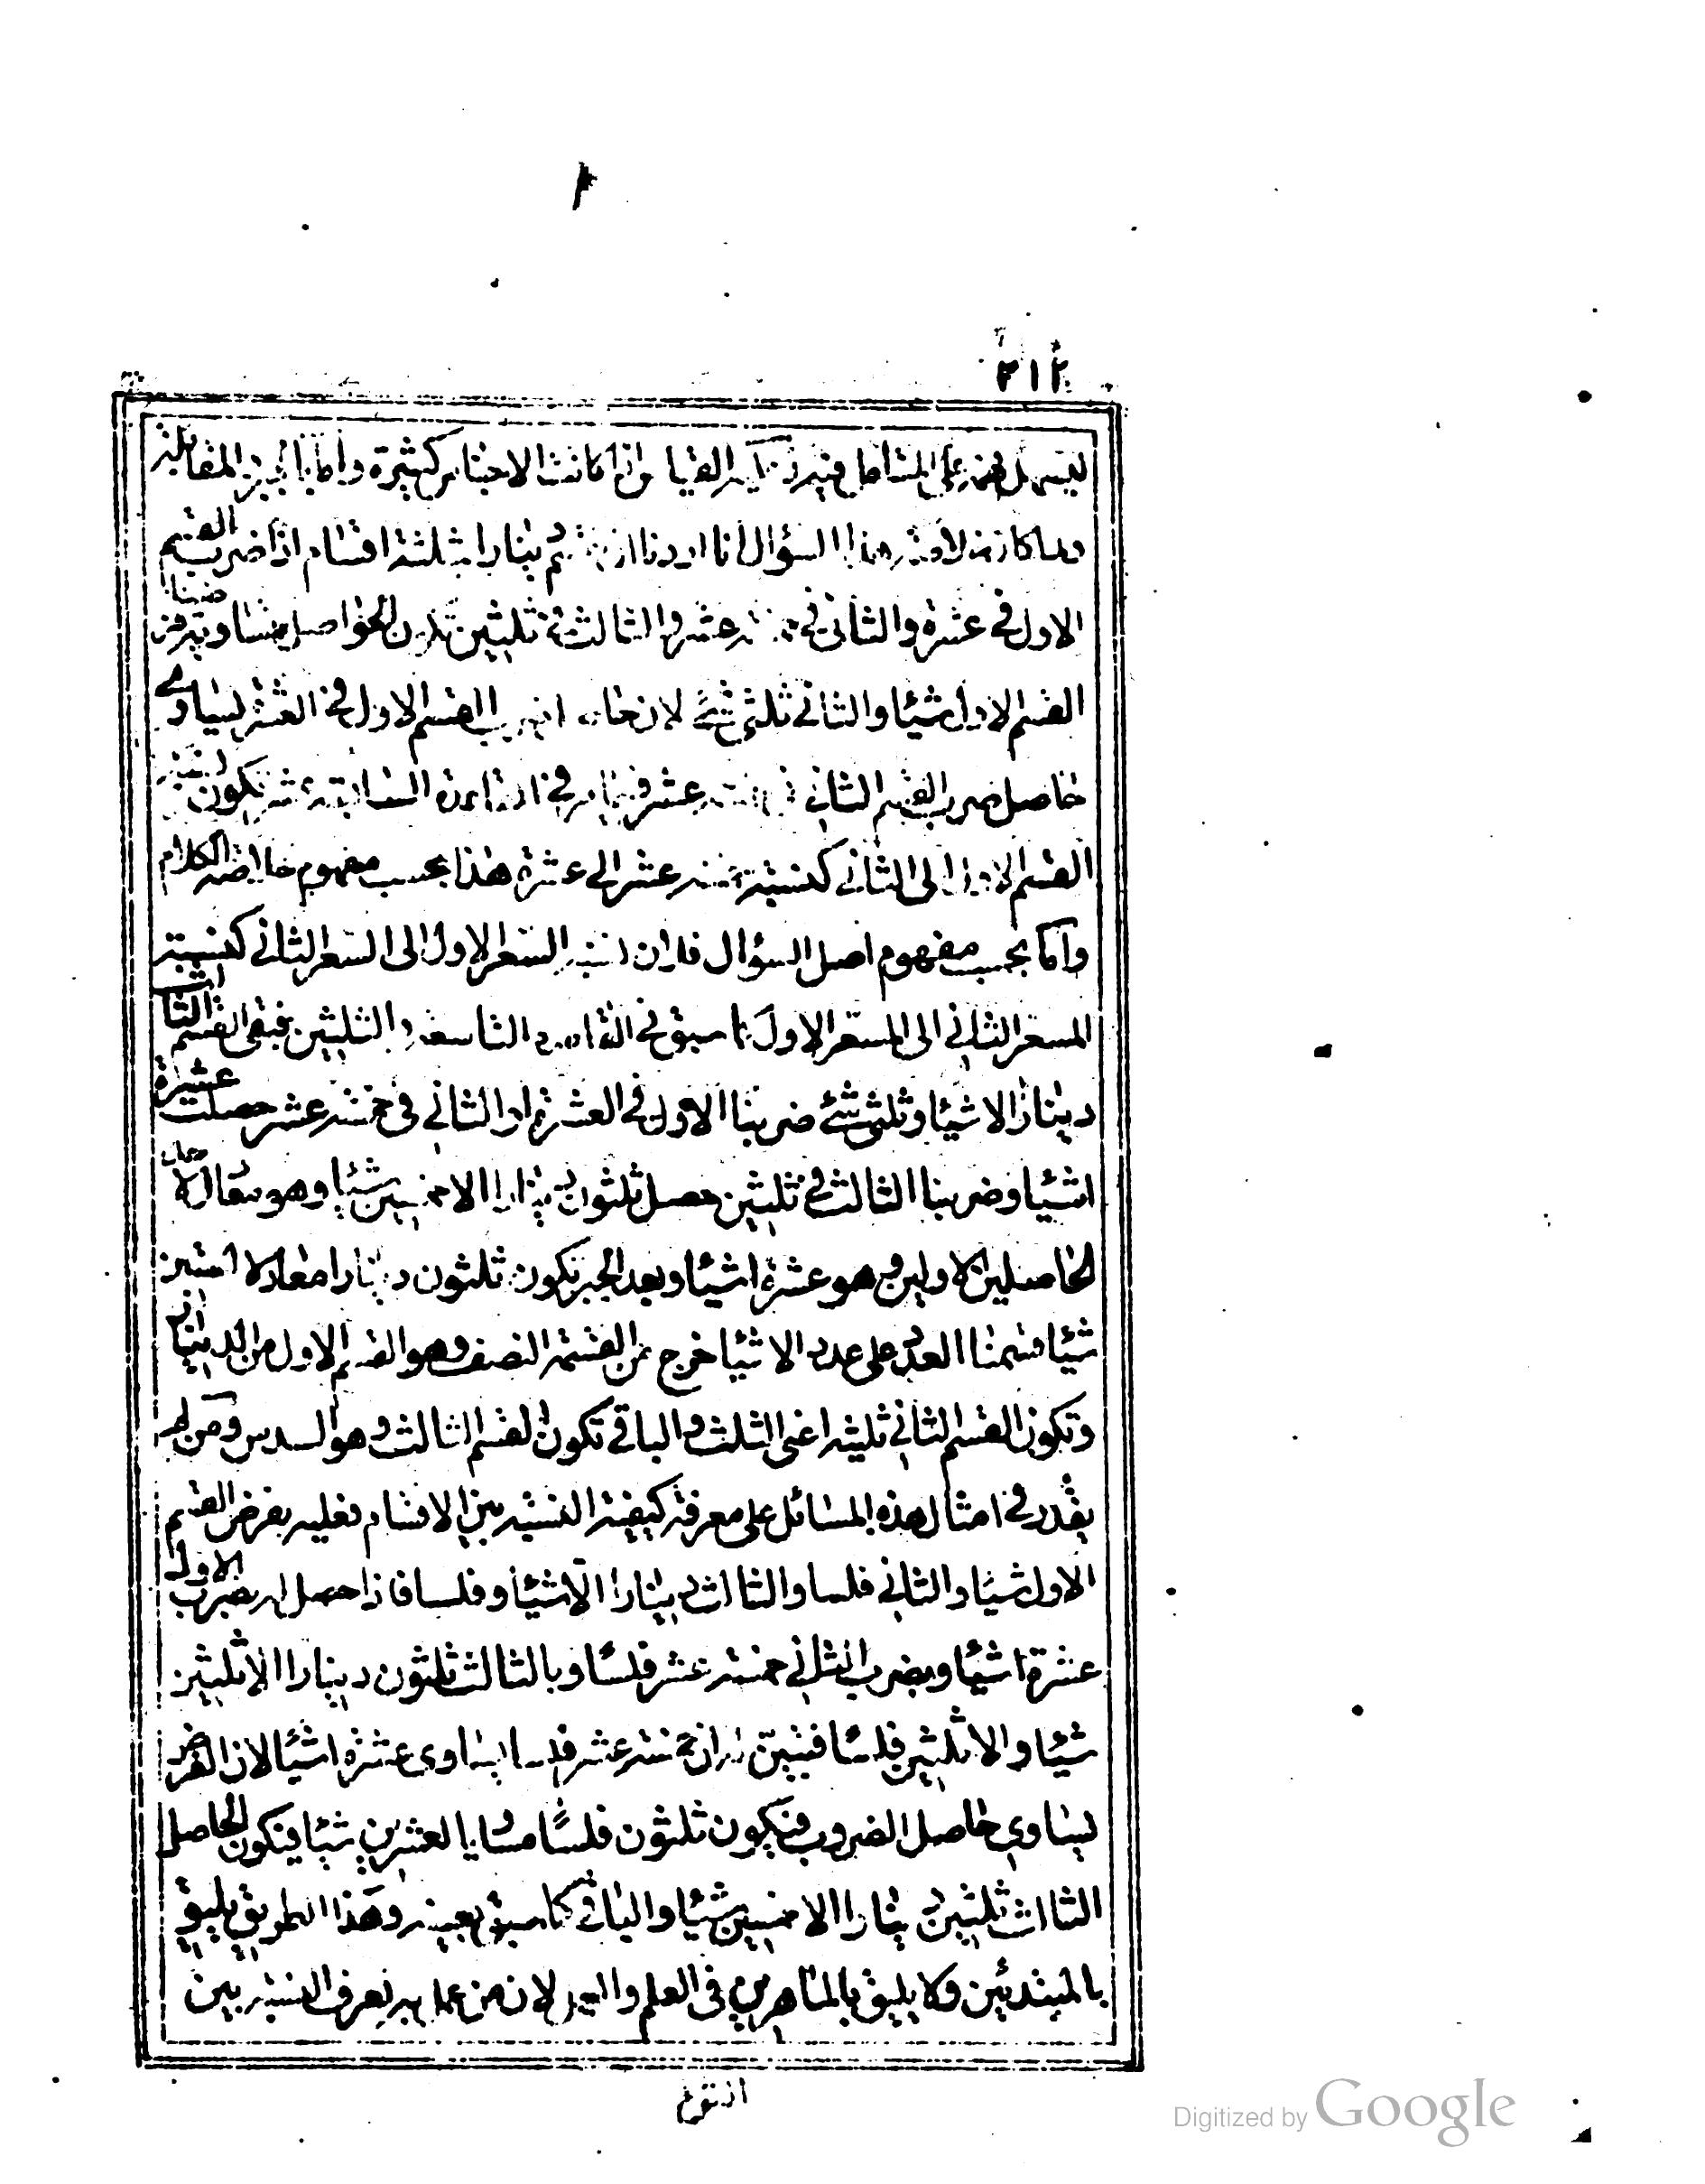 ٣١٢
ليسهل فهمه على المتأمل فيه كثيرة واما بالجبر والمقابلة
هذا السؤال انا اردنا ان دينارا بثلثة اقسام اذا ضرب القسم
الاول في عشرة والثاني في خمسة عشر والثالث في ثلثين تكون الحواصل متساوية فرضنا
القسم الاول شيئا والثاني ثلثي شئ لان حاصل ضرب القسم الاول في العشرة يساوي
حاصل ضرب القسم الثاني في خمسة عشر تكون نسبة
القسم الاول الى الثاني كنسبة خمسة عشر الى عشرة هذا بحسب مفهوم خلاصة الكلام
واما بحسب مفهوم اصل السؤال فلان نسبة السعر الاول الى السعر الثاني كنسبة
المسعر الثاني الى المسعر الاول كما سبق في القاعدة التاسعة والثلثين فبقى القسم الثالث
دينارا الا شيئا وثلثي شئ ضربنا الاول في العشرة والثاني في خمسة عشر حصلت عشرة
اشيا وضربنا الثالث في ثلثين حصل ثلثون دينارا الا خمسين شيئا وهو يعادل
الحاصلين الاولين وهو عشرة اشيا وبعد الجبر تكون ثلثون دينارا معادلا لستين
شيئا قسمنا العدد على عدد الاشيا خرج من القسمة النصف وهو القسم الاول من الدينار
وتكون القسم الثاني ثلثيه اعنى الثلث والباقي تكون القسم الثالث وهو السدس ومن لم
يقدر في امثال هذه المسائل على معرفة كيفية النسبة بين الاقسام فعليه بفرض القسم
الاول شيئا والثاني فلسا والثالث دينارا الا شيئا وفلسا فاذا حصل له بضرب الاول
عشرة اشيا وبضرب الثاني خمسة عشر فلسا وبالثالث ثلثون دينارا الا ثلثين
شيئا والا ثلثين فلسا فتبين له ان خمسة عشر فلسا يساوى عشرة اشيا لان الفرض
يساوي حاصل الضروب فتكون ثلثون فلسا مساويا لعشرين شيئا فيكون الحاصل
الثالث ثلثين دينارا الا خمسين شيئا والباقي كما سبق بعينه وهذا الطريق يليق
بالمبتدئين ولا يليق بالماهرين في العلم والعمل لان من عمل به تعرف النسبة بين
Digitized by Google